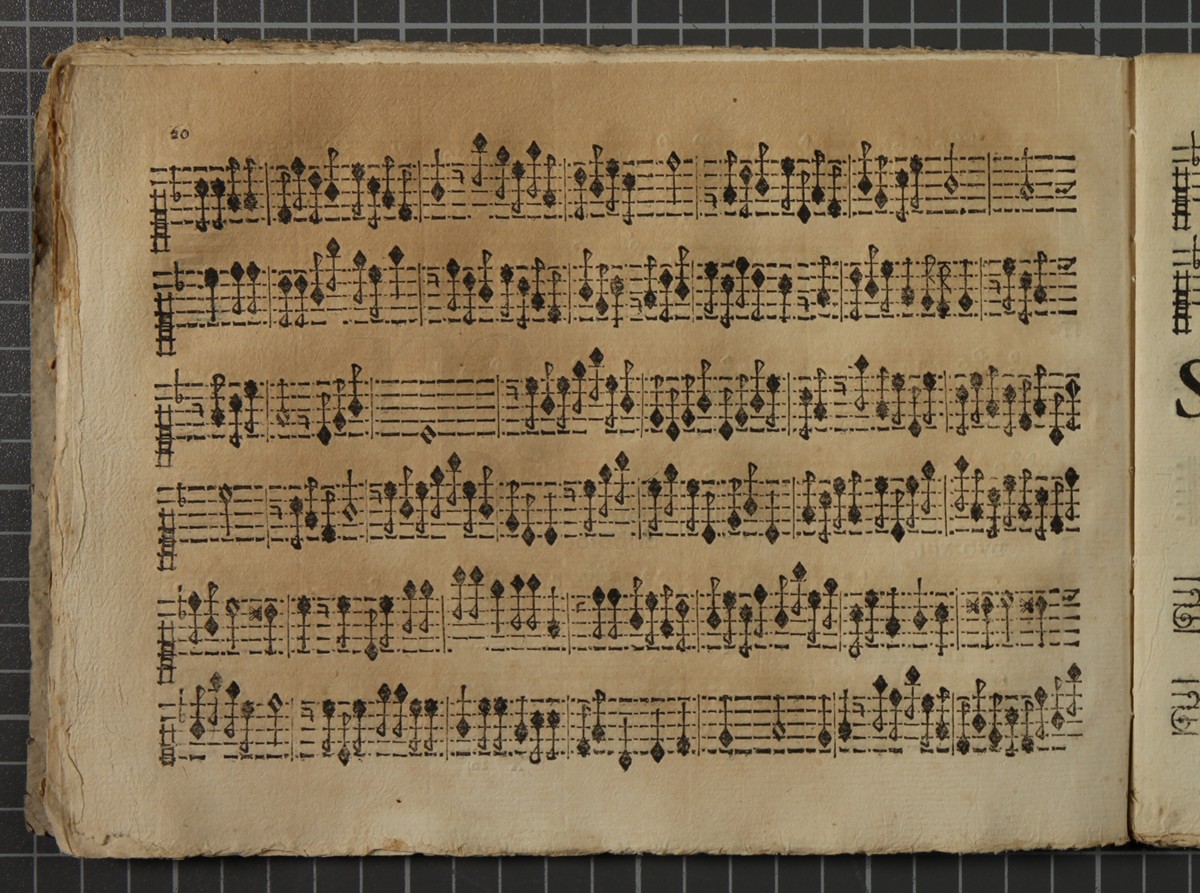 20
S